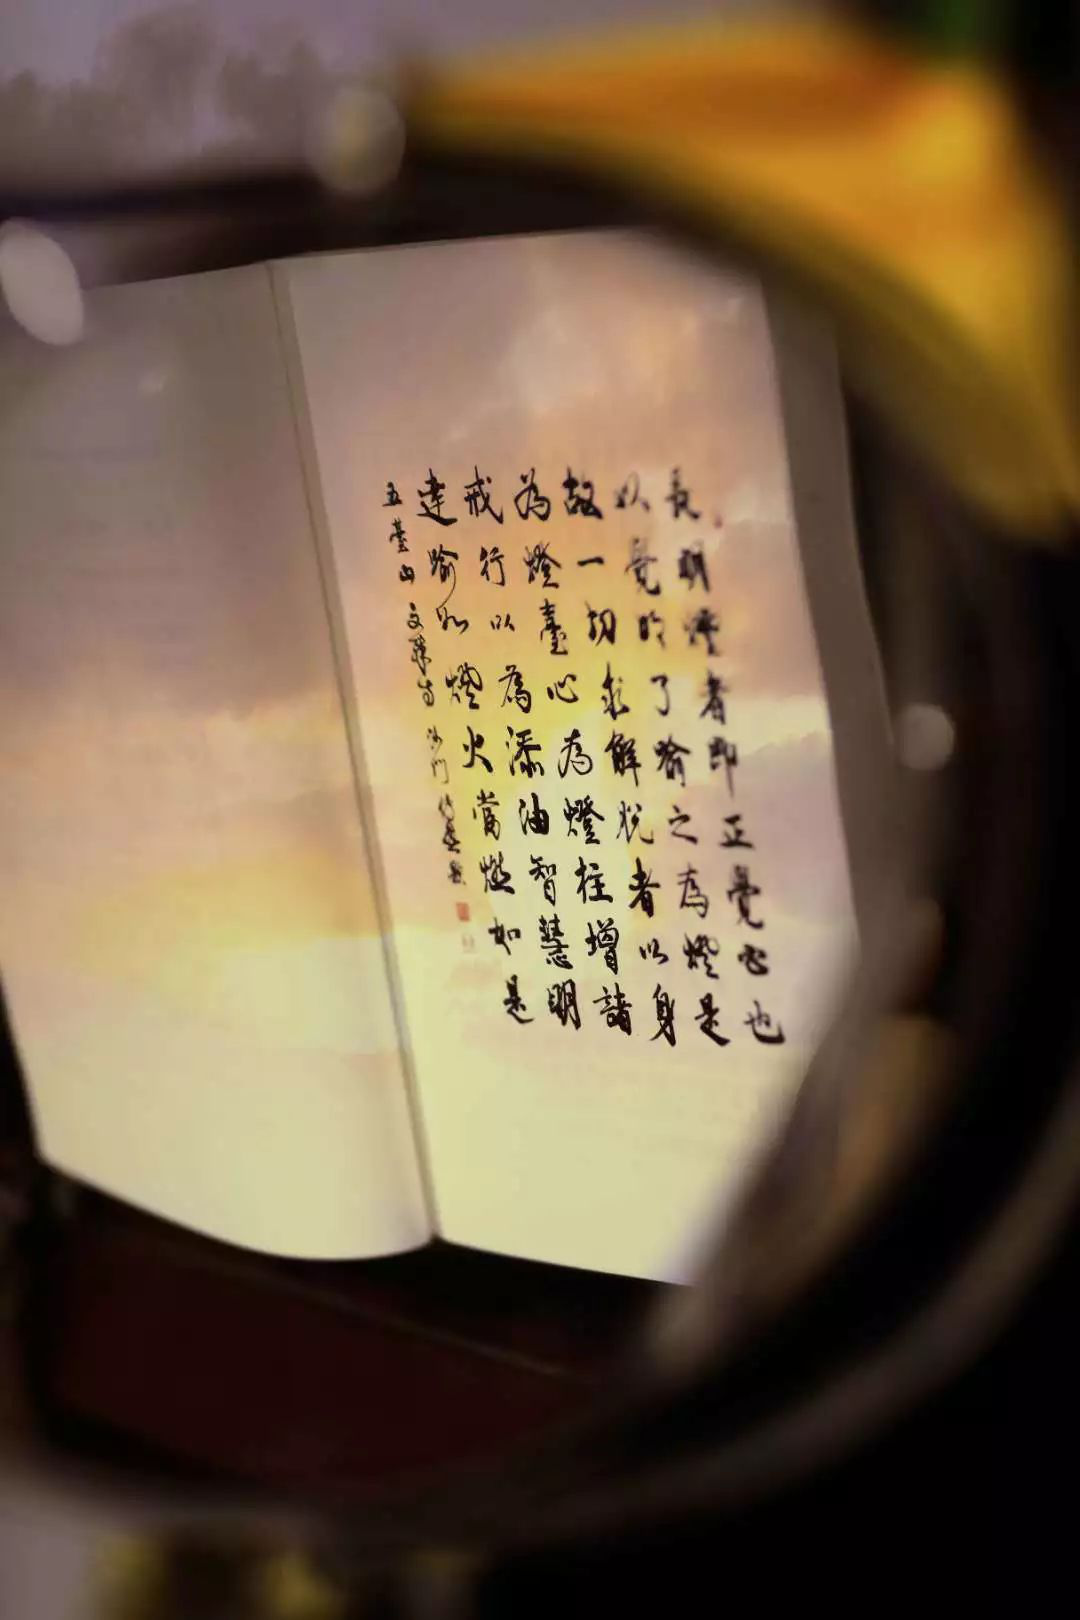 長明燈者即正覺心也
以覺明了喻之為燈是
故一切求解脫者以身
為燈臺心為燈炷增諸
戒行以為添油智慧明
達喻如燈火當燃如是
五臺山文殊寺沙門